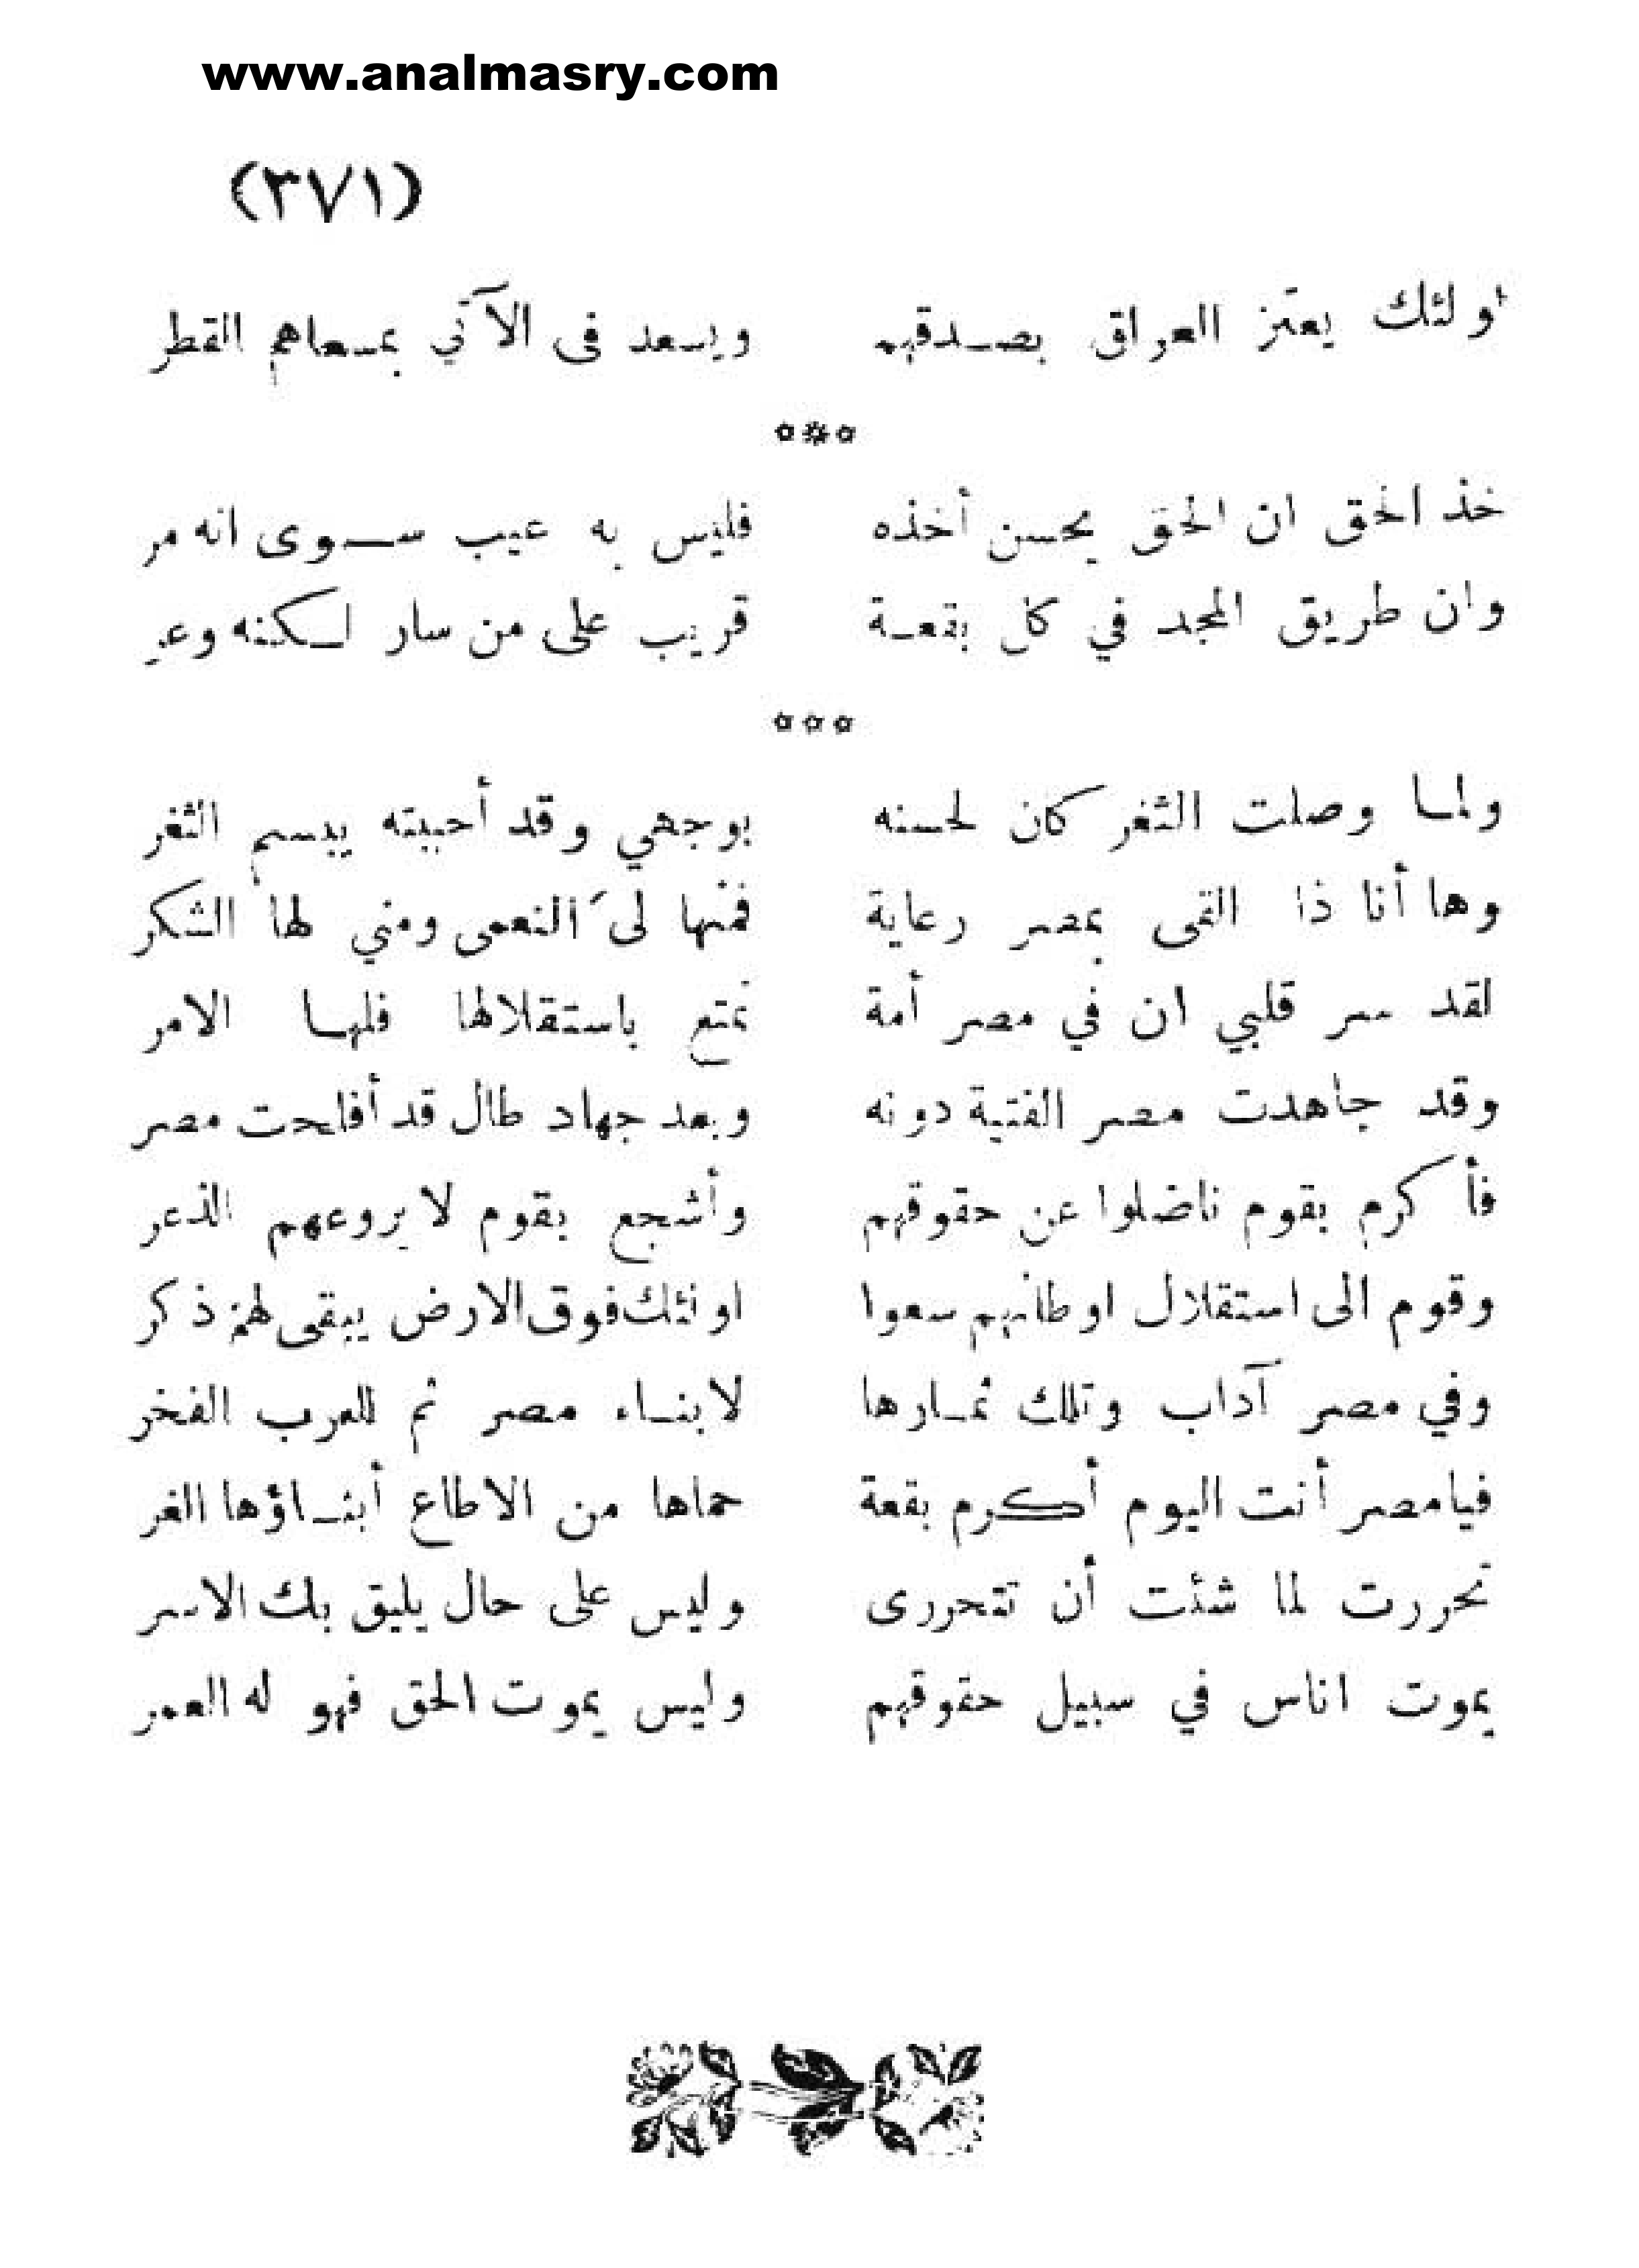 www.analmasry.com
(٣٧١)
اولئك يعتز العراق بصدقهم ويسعد فى الآتي بمسعاهم القطر
***
خذ الحق ان الحق يحسن أخذه فليس به عيب سوى انه مر
وان طريق المجد في كل بقعة قريب على من سار لكنه وعر
***
ولما وصلت الثغر كان لحسنه بوجهي وقد أحببته يبسم الثغر
وها أنا ذا القى بمصر رعاية فمنها لىَ النعمى ومني لها الشكر
لقد سر قلبي ان في مصر أمة تمتع باستقلالها فلها الامر
وقد جاهدت مصر الفتية دونه وبعد جهاد طال قد أفلحت مصر
فأكرم بقوم ناضلوا عن حقوقهم وأشجع بقوم لا يروعهم الذعر
وقوم الى استقلال اوطانهم سعوا اولئك فوق الارض يبقى لهم ذكر
وفي مصر آداب وتلك ثمارها لابناء مصر ثم للعرب الفخر
فيامصر أنت اليوم أكرم بقعة حماها من الاطماع أبناؤها الغر
تحررت لما شئت أن تتحررى وليس على حال يليق بك الاسر
يموت اناس في سبيل حقوقهم وليس يموت الحق فهو له العمر